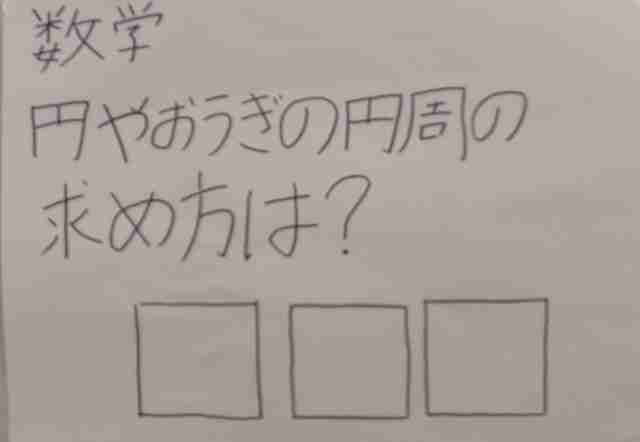 数学
円やおうぎの円周の
求め方は?